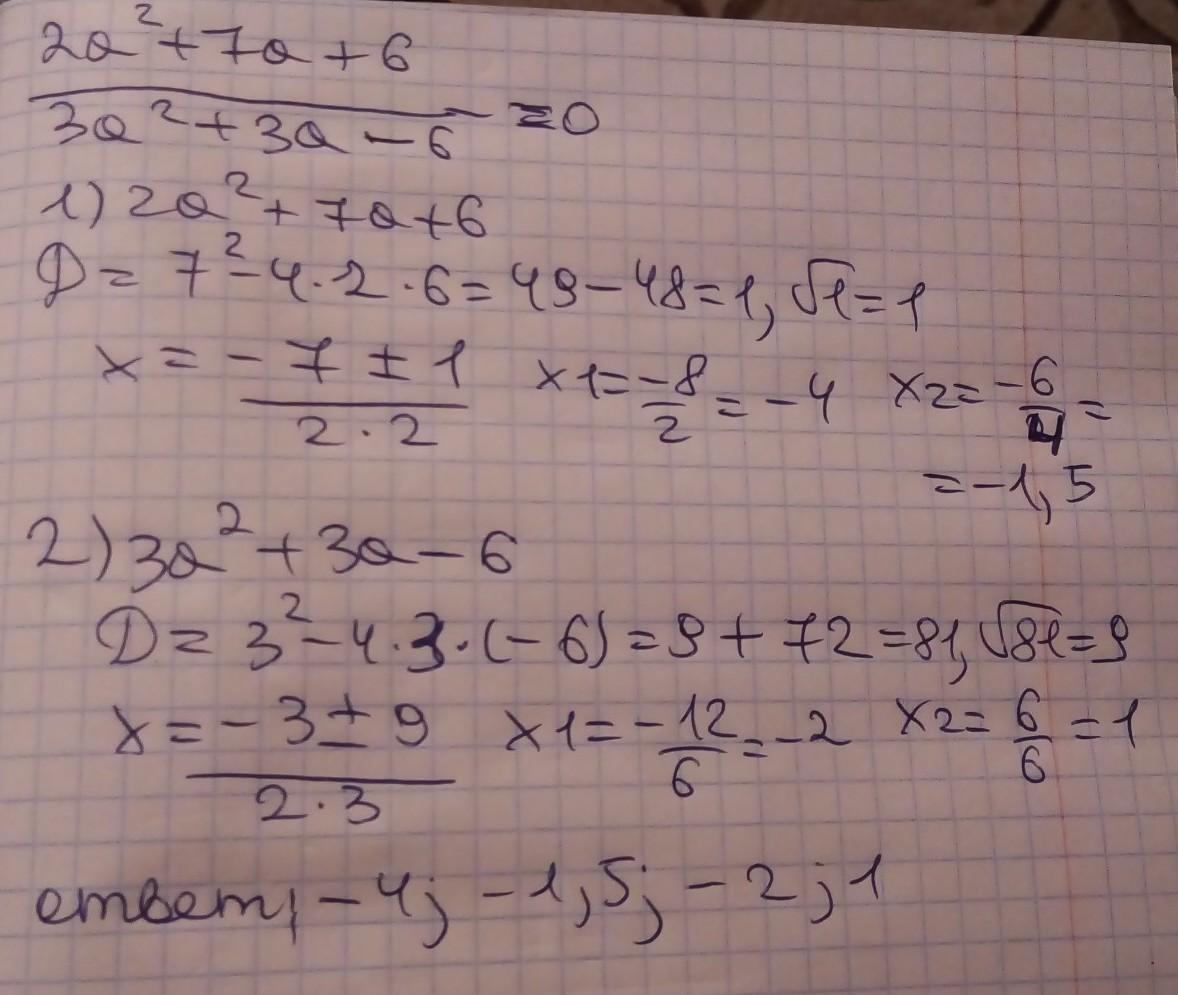 2a²+7a+6
3a²+3a-6 =0
1) 2a²+7a+6
D=7²-4·2·6=49-48=1, √1=1
x=-7±1 x1=-8/2=-4 x2=-6/4=
2·2
=-1,5
2) 3a²+3a-6
D=3²-4·3·(-6)=9+72=81, √81=9
x=-3±9 x1=-12/6=-2 x2=6/6=1
2·3
ответ, -4; -1,5; -2; 1